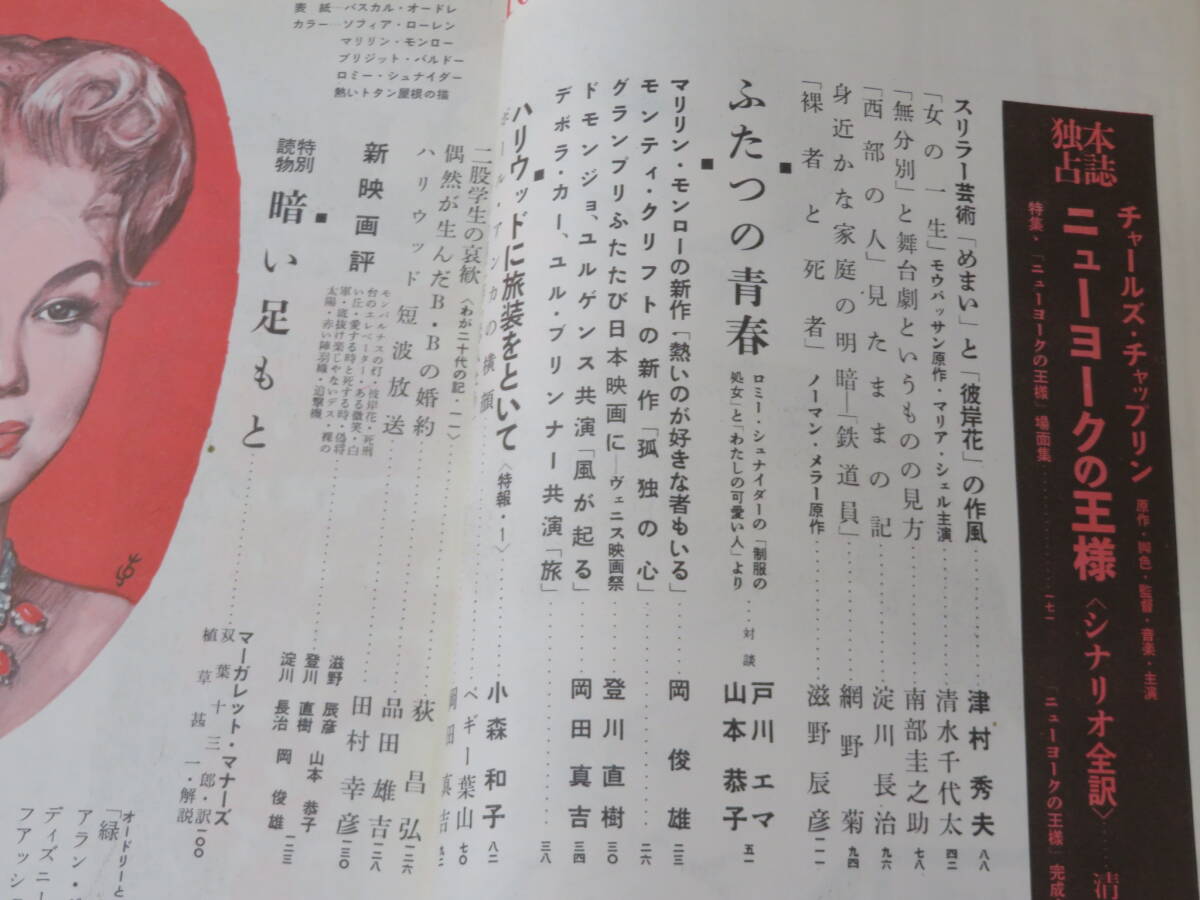 本誌独占
チャールズ・チャップリン 原作・脚色・監督・音楽・主演
ニューヨークの王様〈シナリオ全訳〉……清
特集・「ニューヨークの王様」場面集……一七一
「ニューヨークの王様」完成
スリラー芸術「めまい」と「彼岸花」の作風……津村秀夫 八八
「女の一生」モウパッサン原作・マリア・シェル主演……清水千代太 四二
「無分別」と舞台劇というものの見方……南部圭之助 七八
「西部の人」見たままの記……淀川長治 九六
身近かな家庭の明暗―「鉄道員」……網野菊 九四
「裸者と死者」ノーマン・メラー原作……滋野辰彦 一一一
■ふたつの青春■
ロミー・シュナイダーの「制服の処女」と「わたしの可愛い人」より
対談 戸川エマ 山本恭子 五一
マリリン・モンローの新作・「熱いのが好きな者もいる」……岡俊雄 二三
モンティ・クリフトの新作「孤独の心」……二六
グランプリふたたび日本映画に―ヴェニス映画祭 登川直樹 三〇
ドモンジョ、ユルゲンス共演「風が起る」……岡田真吉 三四
デボラ・カー、ユル・ブリンナー共演「旅」……三八
■ハリウッドに旅装をといて〈特報・1〉……小森和子 八二
の横顔……岡田真吉 九二
二股学生の哀歓〈わが二十代の記・一一〉……ペギー葉山 七〇
偶然が生んだB・Bの婚約……荻昌弘 一二六
ハリウッド短波放送……品田雄吉 一二八
田村幸彦 一三〇
新映画評
モンパルナスの灯・彼岸花・死刑台のエレベーター・ある微笑・白い丘・愛する時と死する時・偽将軍・底抜け楽じゃないデス・裸の太陽・赤い陣羽織・追撃機
滋野辰彦 山本恭子
登川直樹
淀川長治 岡俊雄 一二三
特別読物■暗い足もと……マーガレット・マナーズ
双葉十三郎・訳
植草甚一・解説 一〇〇
表紙―パスカル・オードレ
カラー―ソフィア・ローレン
マリリン・モンロー
ブリジット・バルドー
ロミー・シュナイダー
熱いトタン屋根の猫
オードリーと
「緑
アラン・
ディズニー
ファッシ